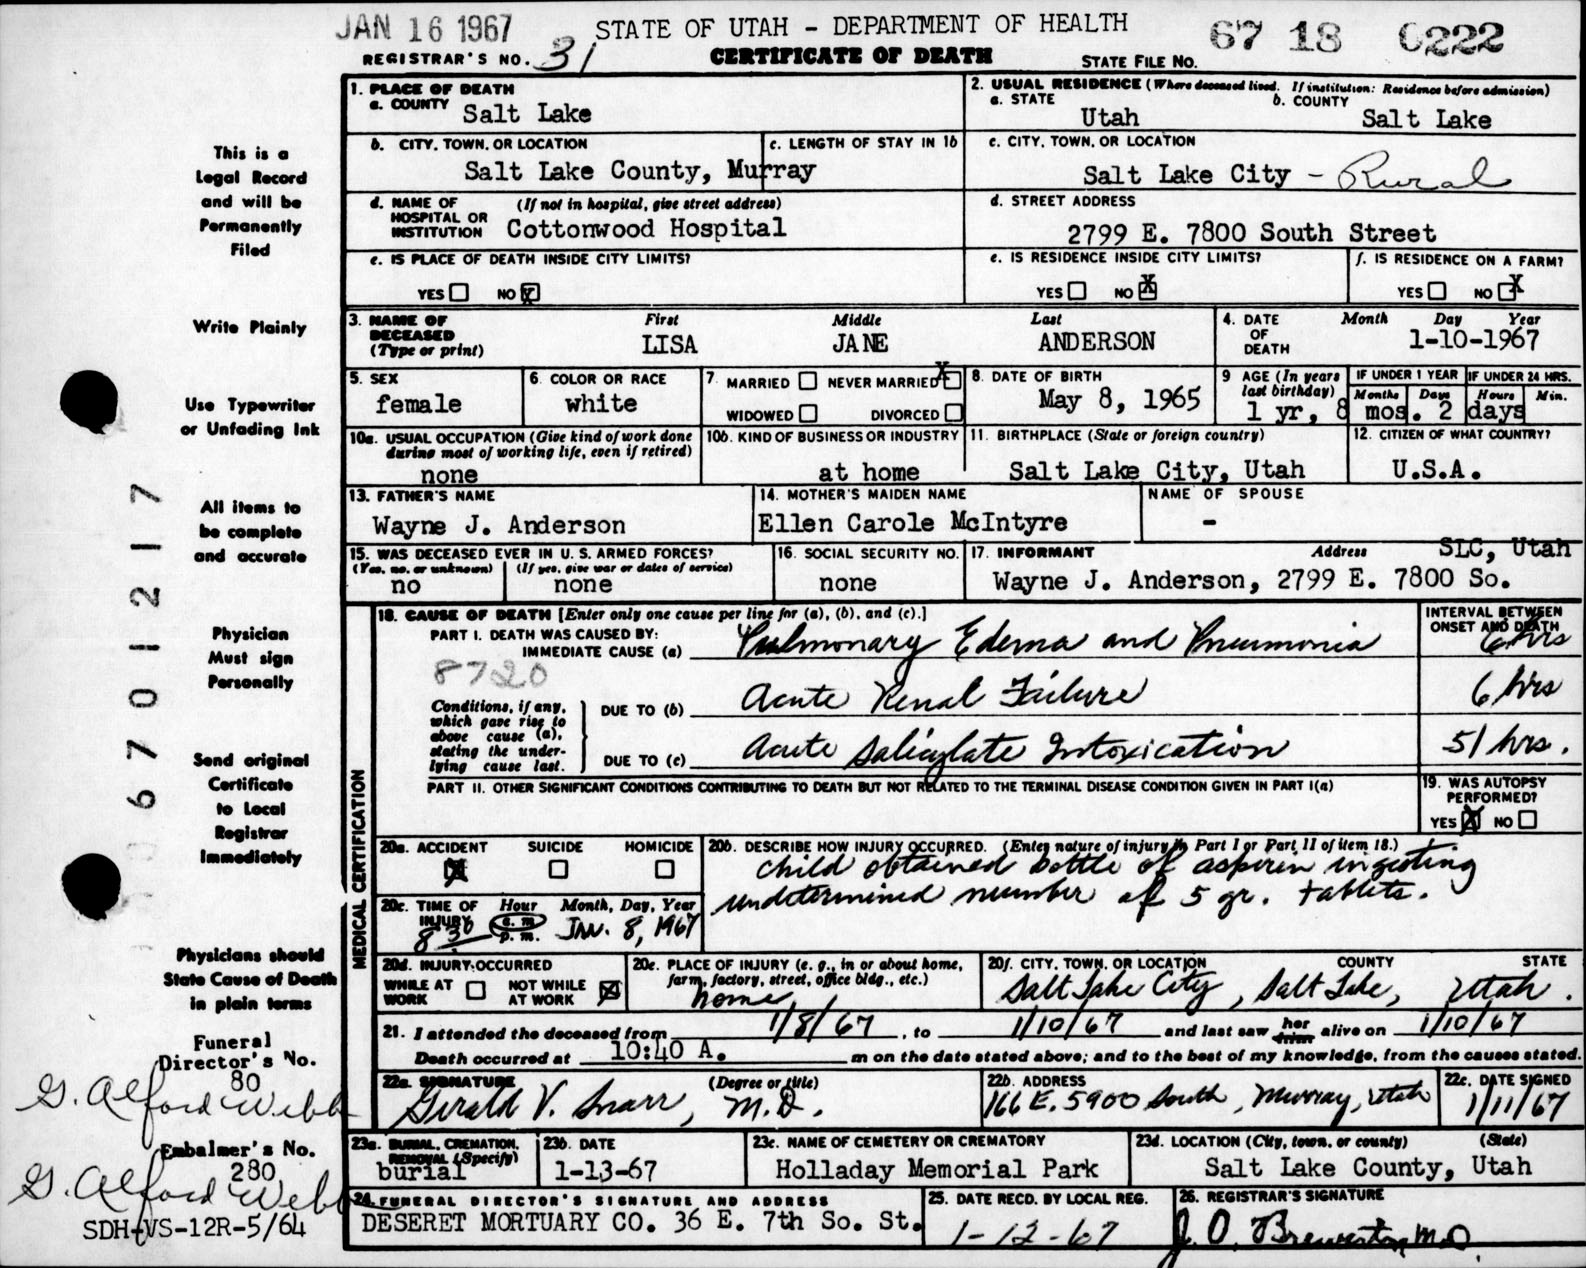 JAN 16 1967
STATE OF UTAH - DEPARTMENT OF HEALTH
67 18 0222
REGISTRAR'S NO. 31
CERTIFICATE OF DEATH
STATE FILE NO.
This is a
Legal Record
and will be
Permanently
Filed
Write Plainly
Use Typewriter
or Unfading Ink
All items to
be complete
and accurate
Physician
Must sign
Personally
Send original
Certificate
to Local
Registrar
Immediately
Physicians should
State Cause of Death
in plain terms
Funeral
Director's No.
80
G. Alford Webb
Embalmer's No.
280
G. Alford Webb
SDH-VS-12R-5/64
6701217
1. PLACE OF DEATH
a. COUNTY Salt Lake
2. USUAL RESIDENCE (Where deceased lived. If institution: Residence before admission)
a. STATE Utah
b. COUNTY Salt Lake
b. CITY, TOWN, OR LOCATION
Salt Lake County, Murray
c. LENGTH OF STAY IN 1b
c. CITY, TOWN, OR LOCATION
Salt Lake City - Rural
d. NAME OF (If not in hospital, give street address)
HOSPITAL OR
INSTITUTION Cottonwood Hospital
d. STREET ADDRESS
2799 E. 7800 South Street
e. IS PLACE OF DEATH INSIDE CITY LIMITS?
YES NO X
e. IS RESIDENCE INSIDE CITY LIMITS?
YES NO X
f. IS RESIDENCE ON A FARM?
YES NO X
3. NAME OF
DECEASED
(Type or print)
First Middle Last
LISA JANE ANDERSON
4. DATE
OF
DEATH
Month Day Year
1-10-1967
5. SEX
female
6. COLOR OR RACE
white
7. MARRIED NEVER MARRIED X
WIDOWED DIVORCED
8. DATE OF BIRTH
May 8, 1965
9 AGE (In years
last birthday)
IF UNDER 1 YEAR IF UNDER 24 HRS.
Months Days Hours Min.
1 yr, 8 mos. 2 days
10a. USUAL OCCUPATION (Give kind of work done
during most of working life, even if retired)
none
10b. KIND OF BUSINESS OR INDUSTRY
at home
11. BIRTHPLACE (State or foreign country)
Salt Lake City, Utah
12. CITIZEN OF WHAT COUNTRY?
U.S.A.
13. FATHER'S NAME
Wayne J. Anderson
14. MOTHER'S MAIDEN NAME
Ellen Carole McIntyre
NAME OF SPOUSE
-
15. WAS DECEASED EVER IN U. S. ARMED FORCES?
(Yes, no, or unknown) (If yes, give war or dates of service)
no none
16. SOCIAL SECURITY NO.
none
17. INFORMANT Address SLC, Utah
Wayne J. Anderson, 2799 E. 7800 So.
MEDICAL CERTIFICATION
18. CAUSE OF DEATH [Enter only one cause per line for (a), (b), and (c).]
INTERVAL BETWEEN
ONSET AND DEATH
PART I. DEATH WAS CAUSED BY:
IMMEDIATE CAUSE (a) Pulmonary Edema and Pneumonia 6 hrs
8720
Conditions, if any,
which gave rise to
above cause (a),
stating the under-
lying cause last.
DUE TO (b) Acute Renal Failure 6 hrs
DUE TO (c) Acute Salicylate Intoxication 51 hrs.
PART II. OTHER SIGNIFICANT CONDITIONS CONTRIBUTING TO DEATH BUT NOT RELATED TO THE TERMINAL DISEASE CONDITION GIVEN IN PART I(a)
19. WAS AUTOPSY
PERFORMED?
YES X NO
20a. ACCIDENT SUICIDE HOMICIDE
X
20b. DESCRIBE HOW INJURY OCCURRED. (Enter nature of injury in Part I or Part II of item 18.)
child obtained bottle of aspirin ingesting
undetermined number of 5 gr. tablets.
20c. TIME OF Hour Month, Day, Year
INJURY a. m.
8 30 p. m. JAN. 8, 1967
20d. INJURY OCCURRED
WHILE AT NOT WHILE
WORK AT WORK X
20e. PLACE OF INJURY (e. g., in or about home,
farm, factory, street, office bldg., etc.)
home
20f. CITY, TOWN, OR LOCATION COUNTY STATE
Salt Lake City, Salt Lake, Utah.
21. I attended the deceased from 1/8/67, to 1/10/67 and last saw her him alive on 1/10/67
Death occurred at 10:40 A. m on the date stated above; and to the best of my knowledge, from the causes stated.
22a. SIGNATURE (Degree or title)
Gerald V. Snarr, M.D.
22b. ADDRESS
166 E. 5900 South, Murray, Utah
22c. DATE SIGNED
1/11/67
23a. BURIAL, CREMATION,
REMOVAL (Specify)
burial
23b. DATE
1-13-67
23c. NAME OF CEMETERY OR CREMATORY
Holladay Memorial Park
23d. LOCATION (City, town, or county) (State)
Salt Lake County, Utah
24. FUNERAL DIRECTOR'S SIGNATURE AND ADDRESS
DESERET MORTUARY CO. 36 E. 7th So. St.
25. DATE RECD. BY LOCAL REG.
1-12-67
26. REGISTRAR'S SIGNATURE
J. O. Brewerton M.D.